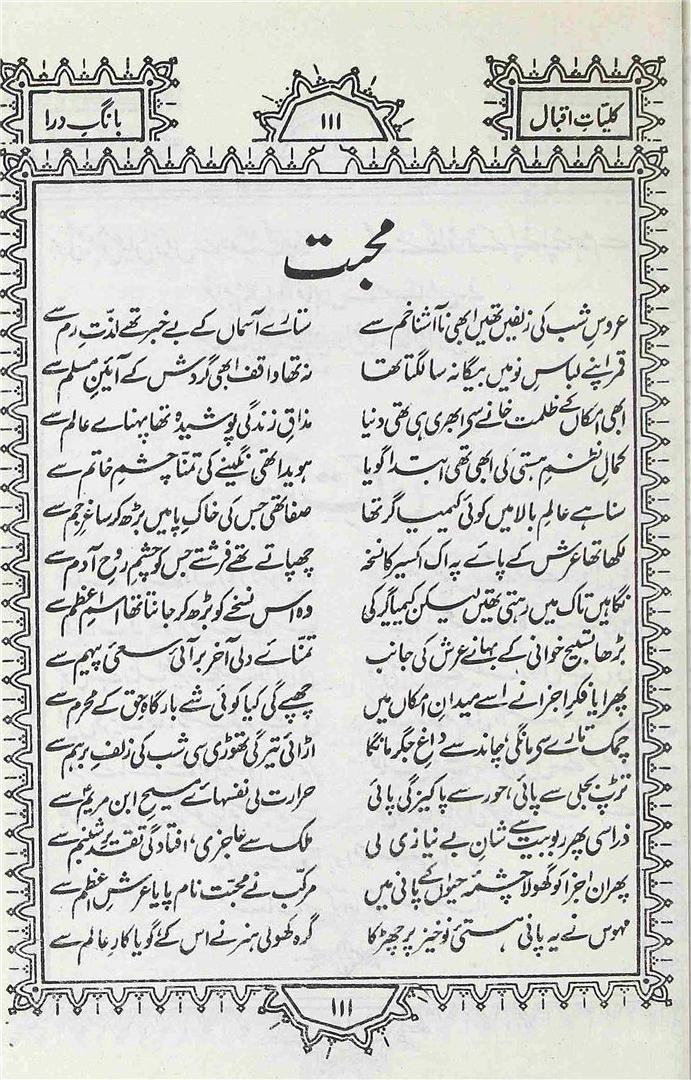 کلیّاتِ اقبال
۱۱۱
بانگِ درا
محبّت
عروسِ شب کی زلفیں تھیں ابھی ناآشنا خم سے ستارے آسماں کے بے خبر تھے لذّتِ رم سے
قمر اپنے لباسِ نو میں بیگانہ سا لگتا تھا نہ تھا واقف ابھی گردش کے آئینِ مسلّم سے
ابھی امکاں کے ظلمت خانے سے ابھری ہی تھی دنیا مذاقِ زندگی پوشیدہ تھا پہنائے عالم سے
کمالِ نظمِ ہستی کی ابھی تھی ابتدا گویا ہویدا تھی نگینے کی تمنّا چشمِ خاتم سے
سنا ہے عالمِ بالا میں کوئی کیمیا گر تھا صفا تھی جس کی خاکِ پا میں بڑھ کر ساغرِ جم سے
لکھا تھا عرش کے پائے پہ اک اکسیر کا نسخہ چھپاتے تھے فرشتے جس کو چشمِ روحِ آدم سے
نگاہیں تاک میں رہتی تھیں لیکن کیمیا گر کی وہ اس نسخے کو بڑھ کر جانتا تھا اسمِ اعظم سے
بڑھا تسبیح خوانی کے بہانے عرش کی جانب تمنّائے دلی آخر بر آئی سعیِٔ پیہم سے
پھرایا فکرِ اجزا نے اسے میدانِ امکاں میں چھپے گی کیا کوئی شے بارگاہِ حق کے محرم سے
چمک تارے سے مانگی، چاند سے داغِ جگر مانگا اڑائی تیرگی تھوڑی سی شب کی زلفِ برہم سے
تڑپ بجلی سے پائی، حور سے پاکیزگی پائی حرارت لی نفسہائے مسیحِ ابنِ مریمؑ سے
ذرا سی پھر ربوبیت سے شانِ بے نیازی لی ملک سے عاجزی، افتادگی تقدیرِ شبنم سے
پھر ان اجزا کو گھولا چشمۂ حیواں کے پانی میں مرکّب نے محبّت نام پایا عرشِ اعظم سے
مہوّس نے یہ پانی ہستیِٔ نوخیز پر چھڑکا گرہ کھولی ہنر نے اس کے گویا کارِ عالم سے
۱۱۱